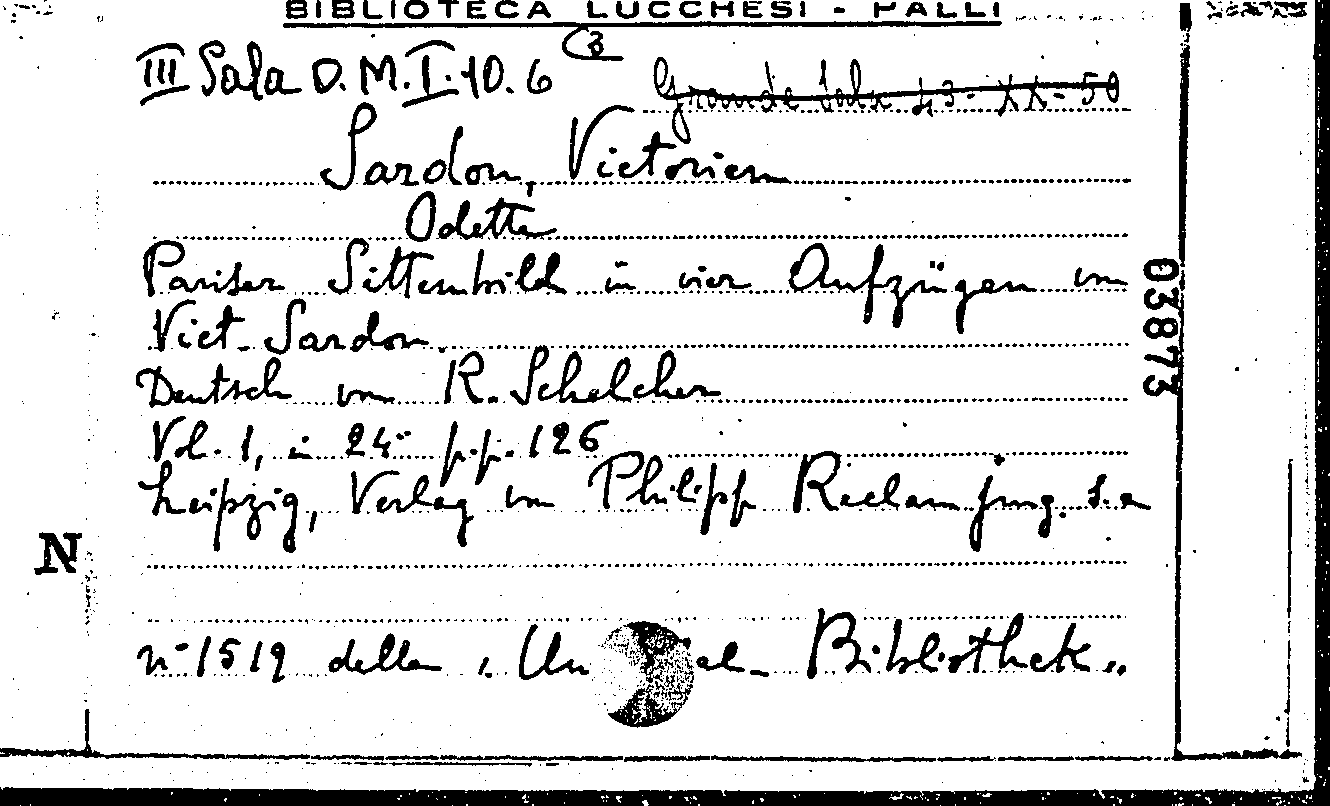 BIBLIOTECA LUCCHESI - PALLI
III Sala D.M.I.10.6 (3
Grande Sala 43-XX-50
Sardou, Victorien
Odette
Pariser Sittenbild in vier Aufzügen von
Vict. Sardou.
Deutsch von R. Schelcher
Vol. 1, in 24° p.p. 126
Leipzig, Verlag von Philipp Reclam jung. s.a
n° 1519 della "Un al- Bibliothek"
03873
N